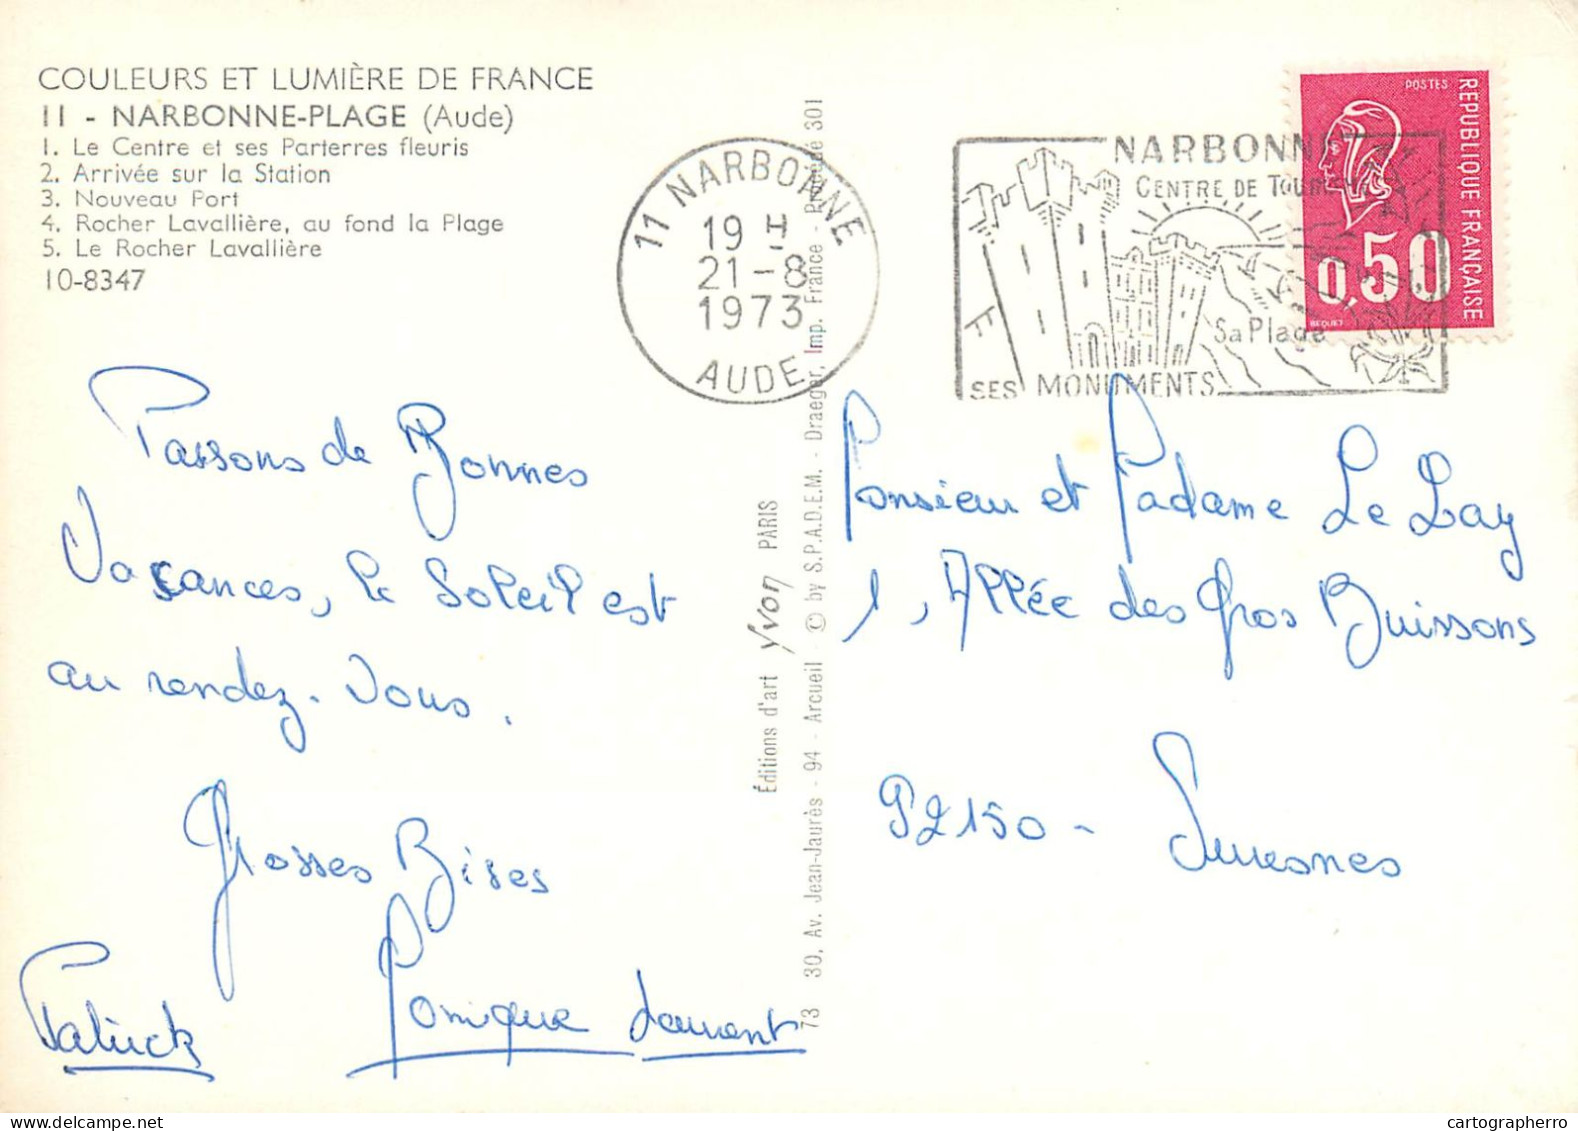 COULEURS ET LUMIÈRE DE FRANCE
11 - NARBONNE-PLAGE (Aude)
1. Le Centre et ses Parterres fleuris
2. Arrivée sur la Station
3. Nouveau Port
4. Rocher Lavallière, au fond la Plage
5. Le Rocher Lavallière
10-8347
11 NARBONNE
19 H
21-8
1973
AUDE
NARBONNE
CENTRE DE TOURISME
Sa Plage
SES MONUMENTS
POSTES
REPUBLIQUE FRANÇAISE
0,50
BEQUET
Passons de Bonnes
Vacances, le Soleil est
au rendez-vous.
Grosses Bises
Patrick
Monique Laurent
Éditions d'art Yvon PARIS
73 30, Av. Jean-Jaurès - 94 - Arcueil - © by S.P.A.D.E.M. - Draeger, Imp. France - Procédé 301
Monsieur et Madame Le Lay
1, Allée des Gros Buissons
92150 - Suresnes
cartographerro